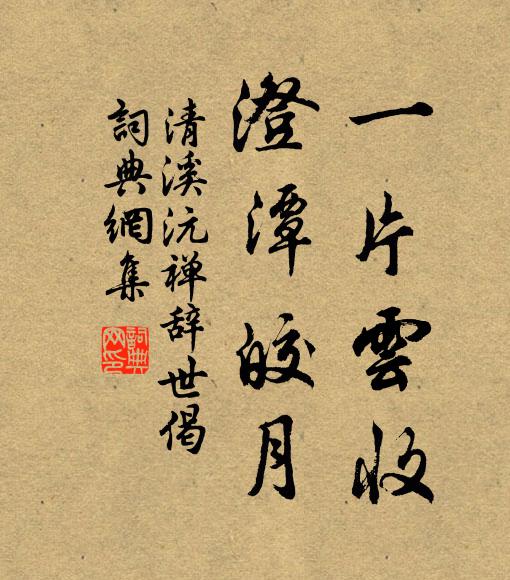 一片雲收
澄潭皎月
清溪沅禅辞世偈
詞典網集
詞典網印